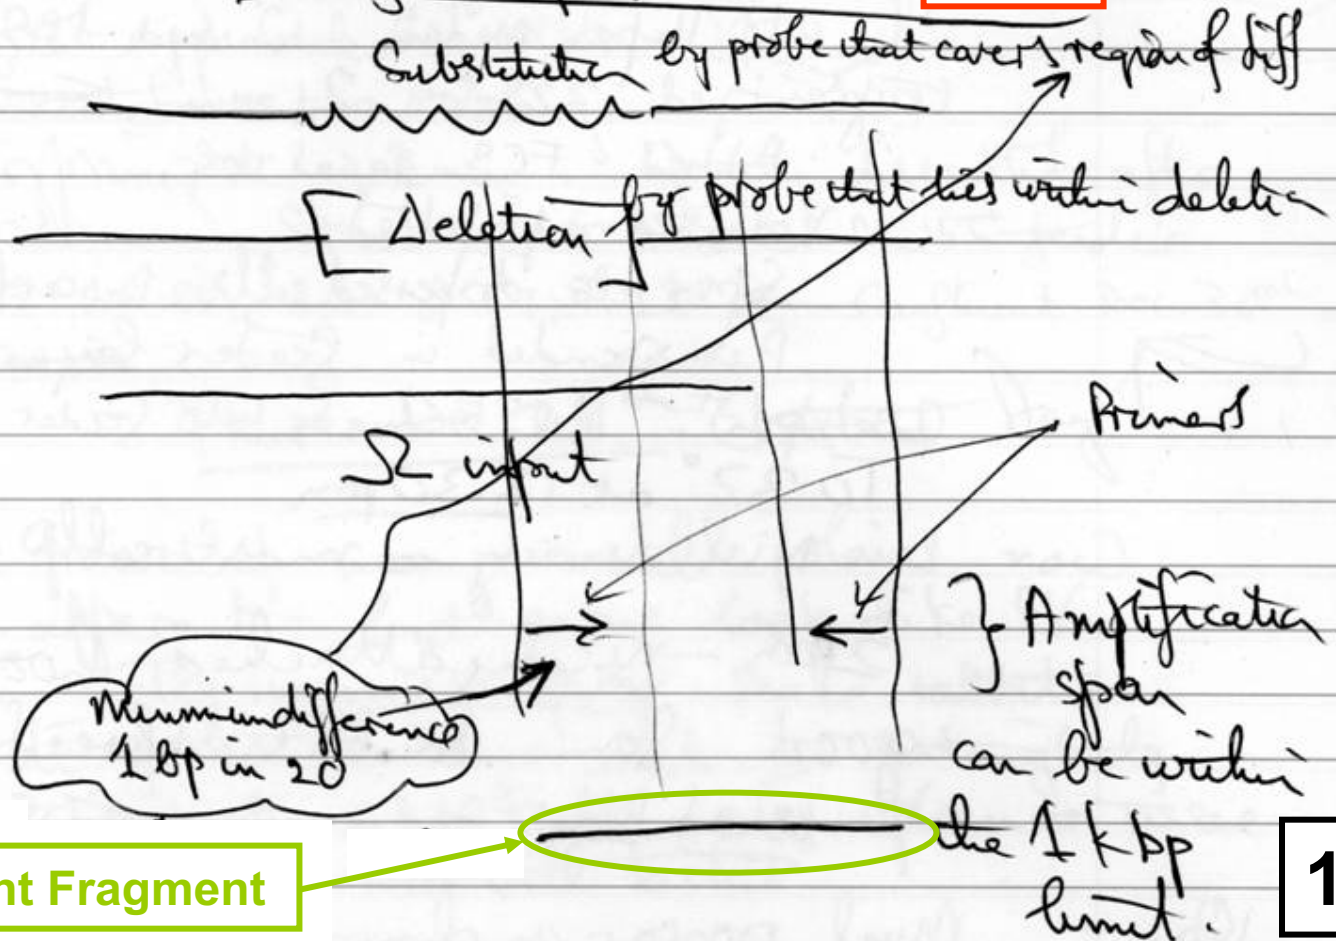 Substitution by probe that covers region of diff
[ Deletion ] by probe that lies within deletion
Ω input
Primers
} Amplification
span
can be within
the 1 kbp
limit.
Minimum difference
1 bp in 20
nt Fragment
1